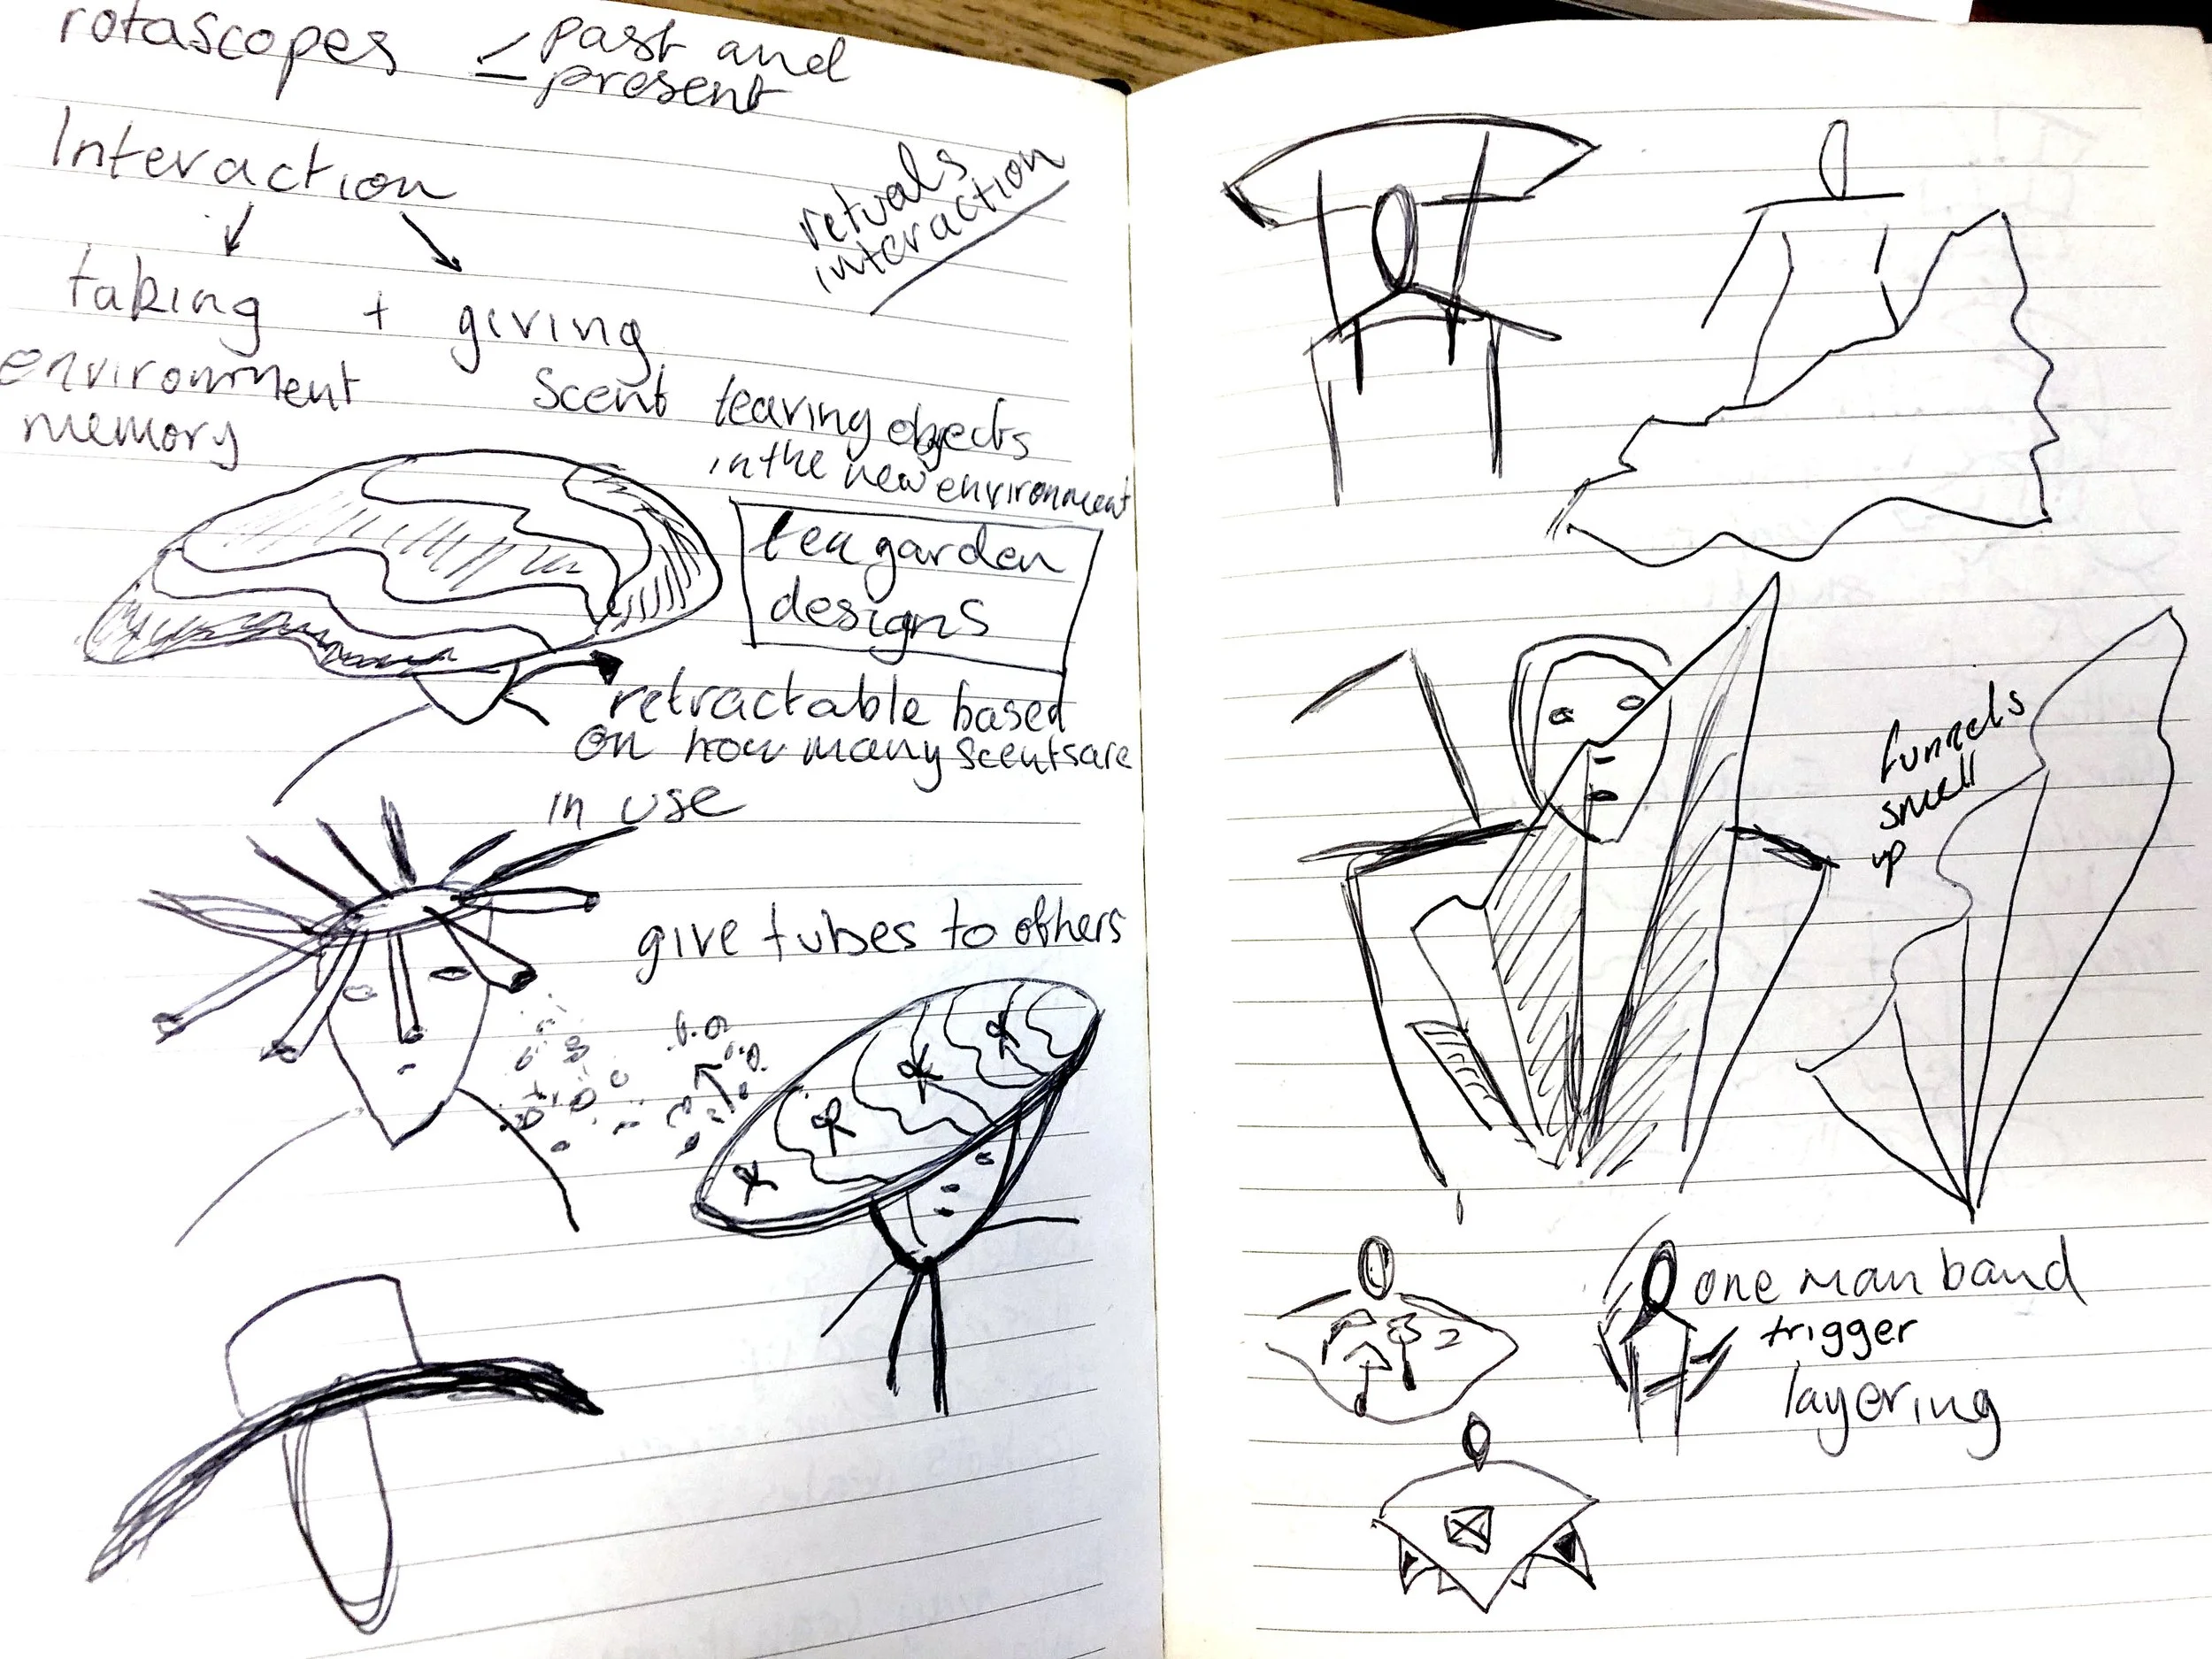 rotascopes = past and
present
Interaction
retuals
interaction
taking + giving
environment
memory
scent
leaving objects
in the new environment
tea garden
designs
retractable based
on how many scents are
in use
give tubes to others
funnels
smell
up
one man band
trigger
layering